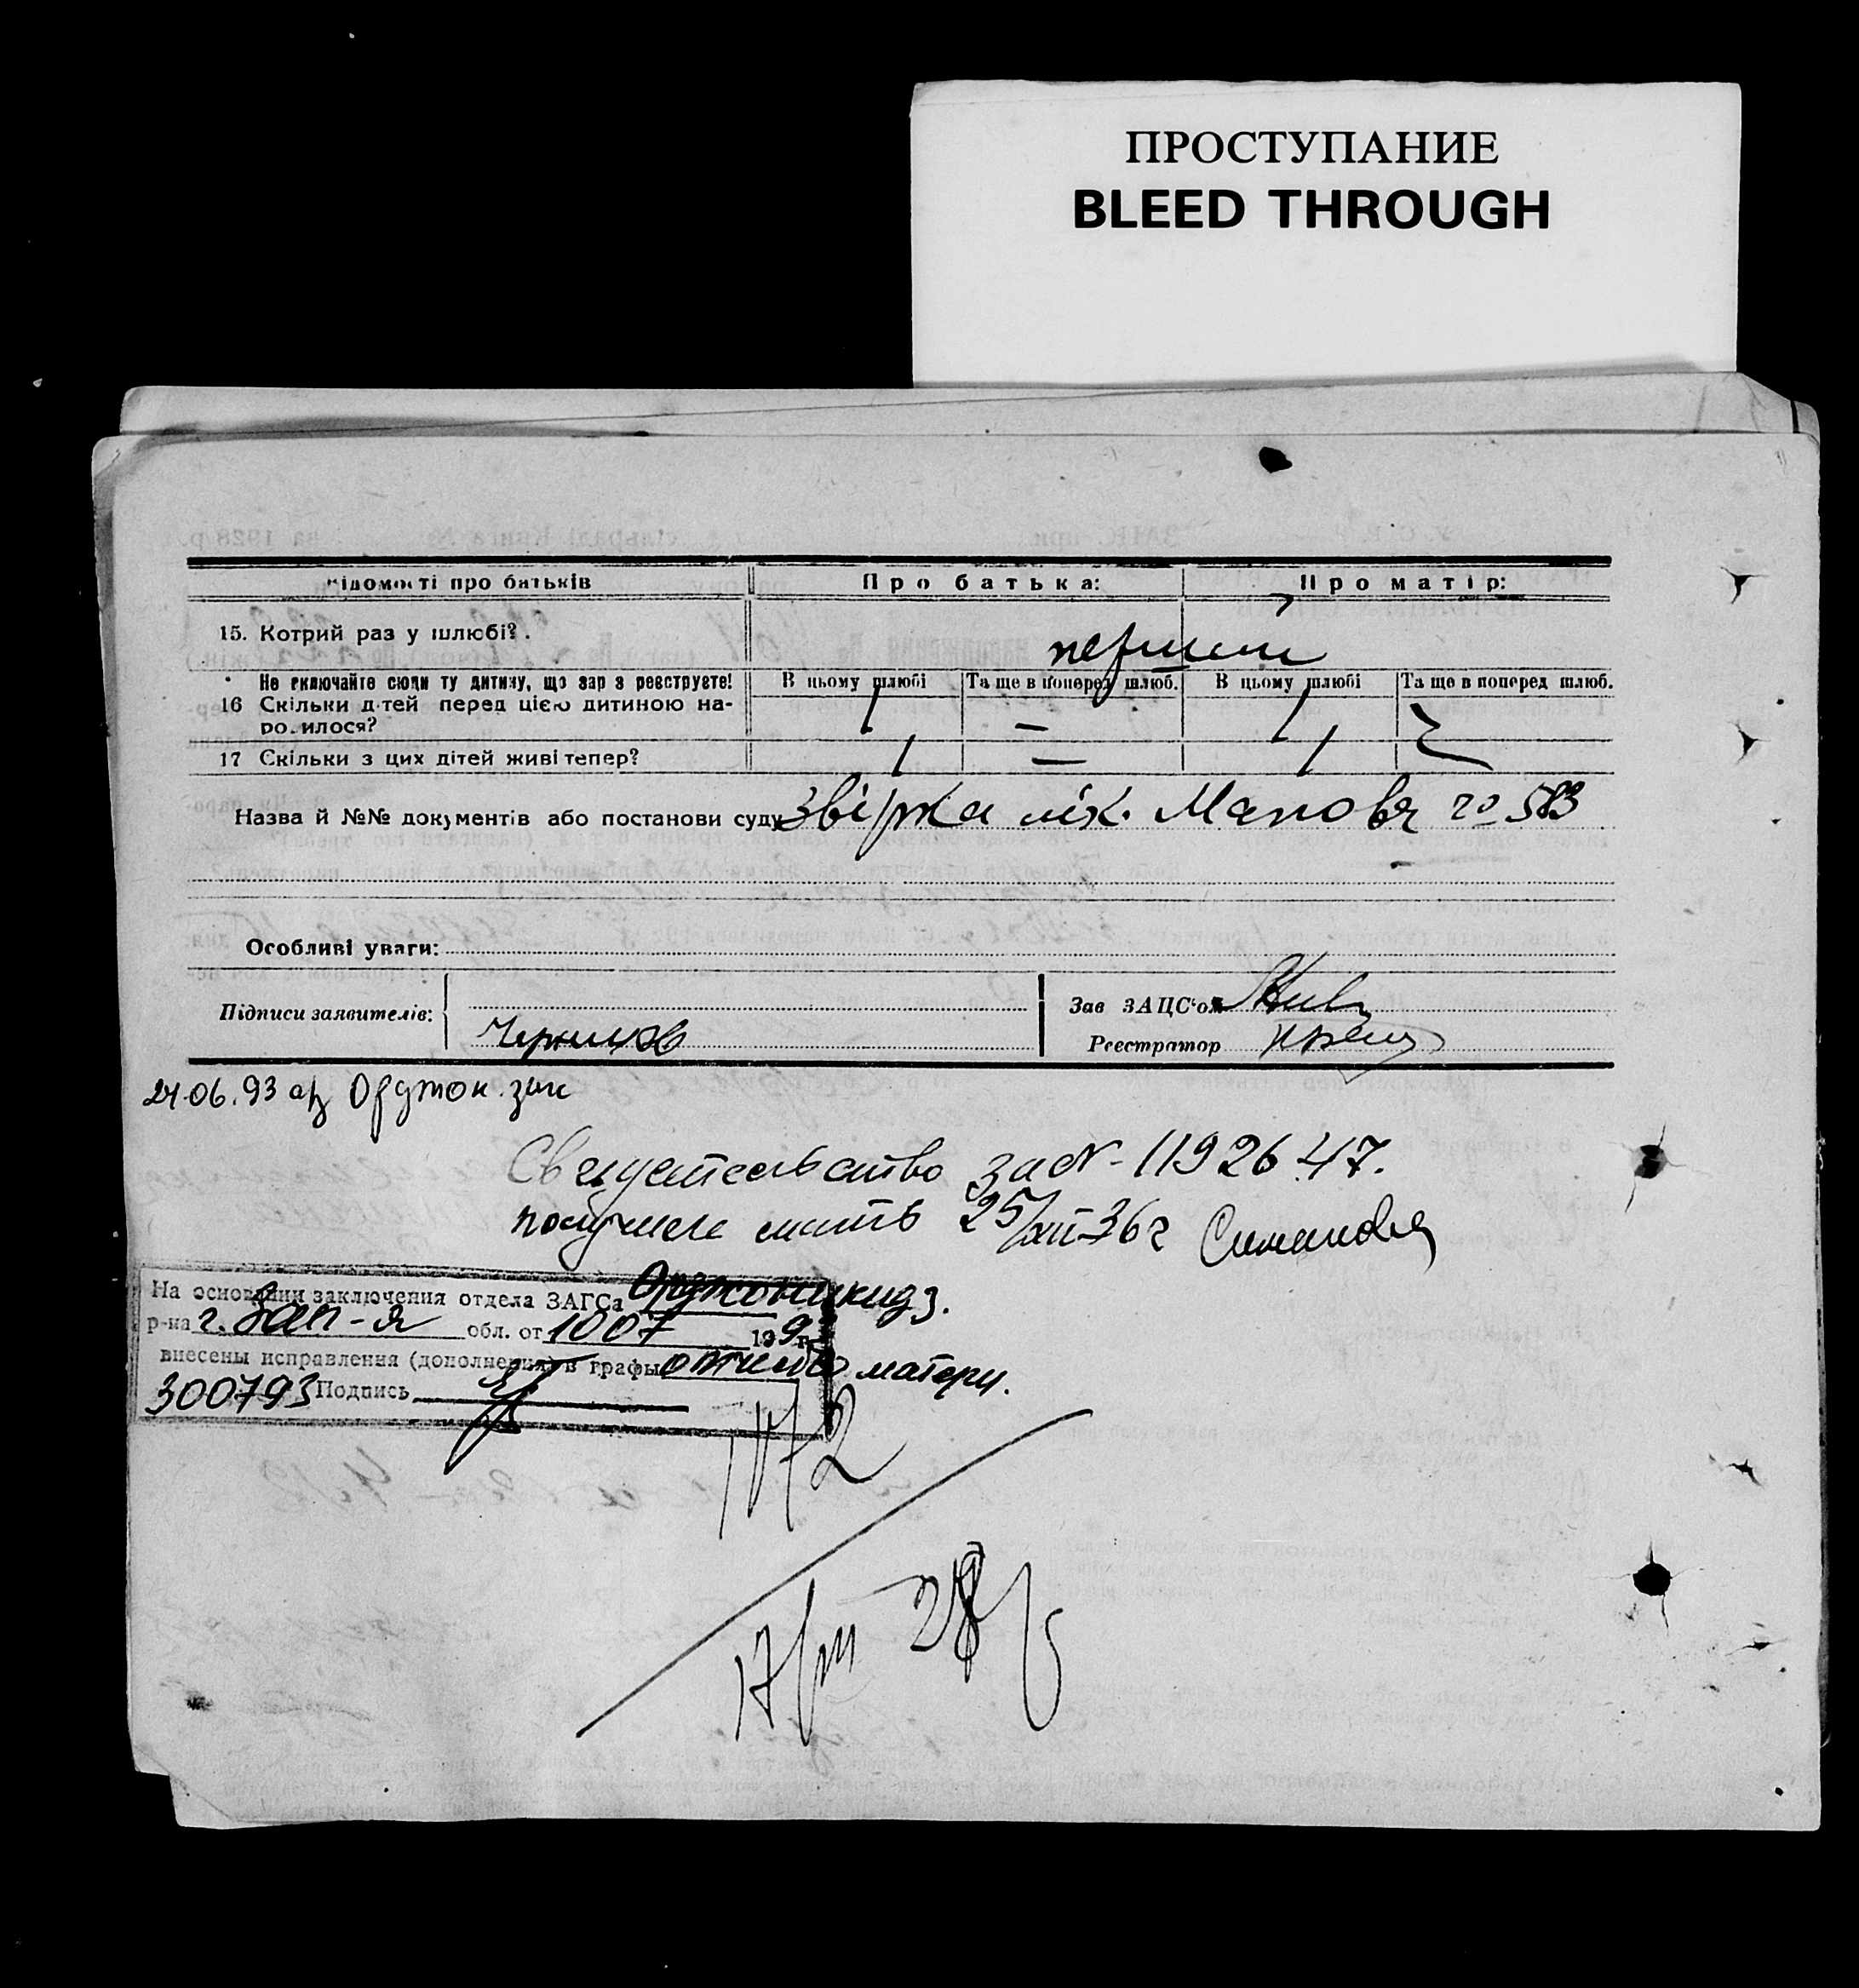 ПРОСТУПАНИЕ
BLEED THROUGH
Відомості про батьків Про батька: Про матір:
15. Котрий раз у шлюбі?. перший
Не включайте сюди ту дитину, що зараз реєструєте! В цьому шлюбі Та ще в поперед шлюб. В цьому шлюбі Та ще в поперед шлюб.
16 Скільки дітей перед цією дитиною на- 1 — 1
родилося?
17 Скільки з цих дітей живі тепер? 1 — 1
Назва й №№ документів або постанови суду звірка лік. №583
Особливі уваги:
Підписи заявителів: Зав ЗАЦС'ом
Реєстратор
24.06.93 Орджон.
Свидетельство за №-1192647.
получила мать 25/XII-36г Симанова
На основании заключения отдела ЗАГСа Орджоникидз.
р-на г. Зап-я обл. от 1007 199 г.
внесены исправления (дополнения) в графы отчество матери.
300793 Подпись
17/III 28